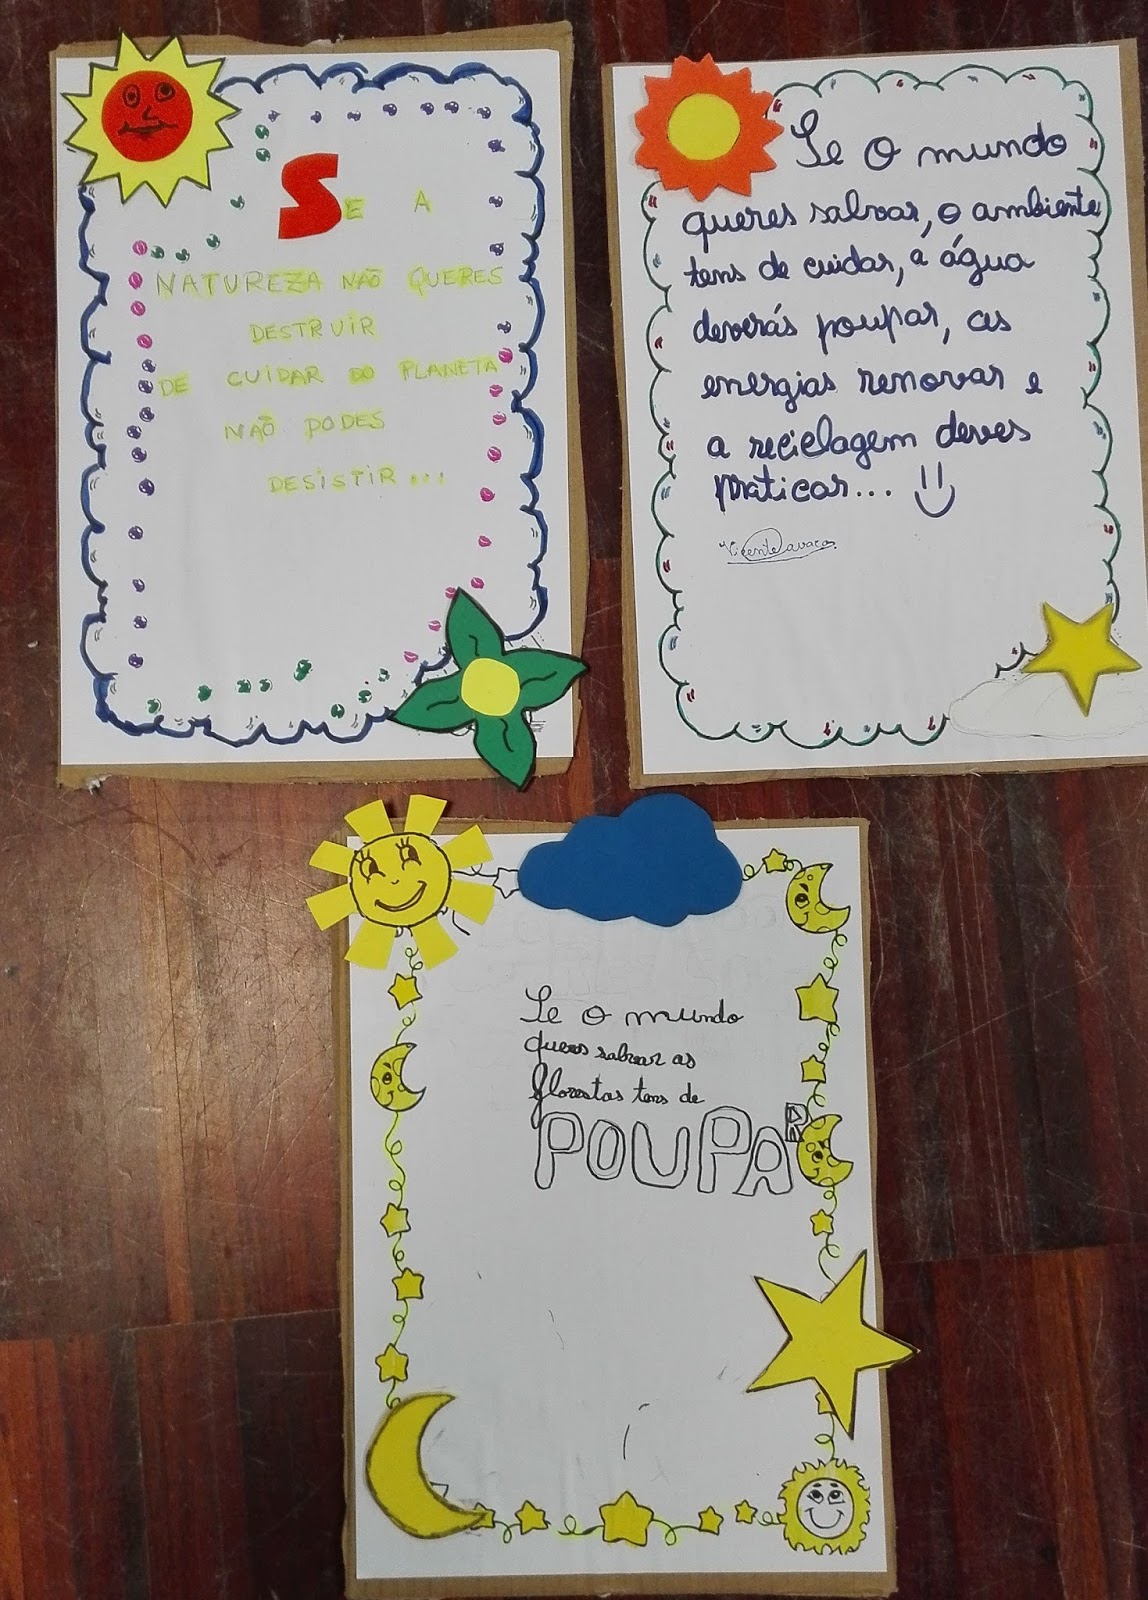 SE A
NATUREZA NÃO QUERES
DESTRUIR
DE CUIDAR DO PLANETA
NÃO PODES
DESISTIR...
Se o mundo
queres salvar, o ambiente
tens de cuidar, a água
deverás poupar, as
energias renovar e
a reciclagem deves
praticar...
Vicente
Se o mundo
queres salvar as
florestas tens de
POUPAR